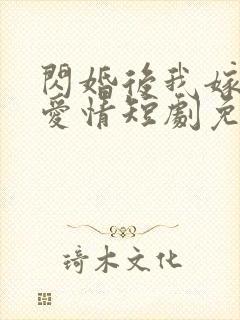 閃婚後我嫁
愛情短劇免
琦木文化